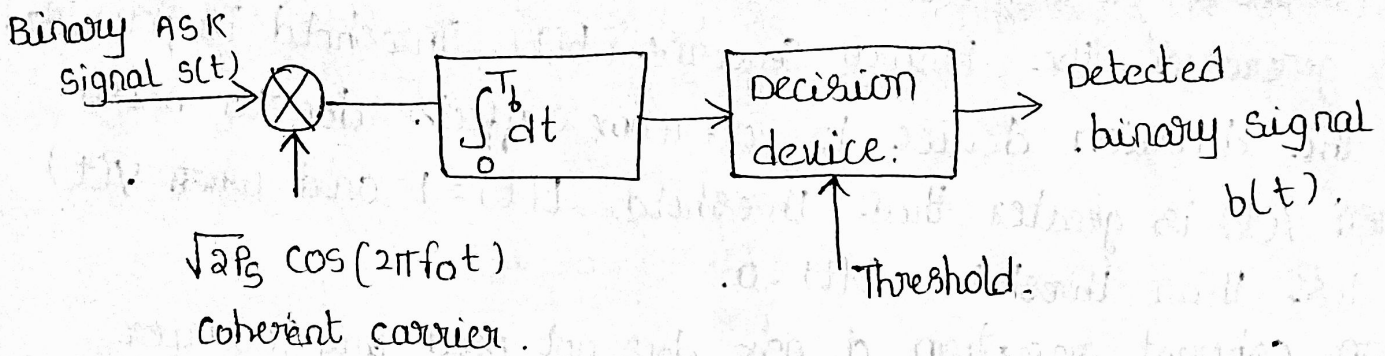 Binary ASK
Signal s(t)
∫₀^{T_b} dt
Decision
device.
Detected
binary signal
b(t).
√2Ps cos(2πf₀t)
Coherent carrier.
Threshold.